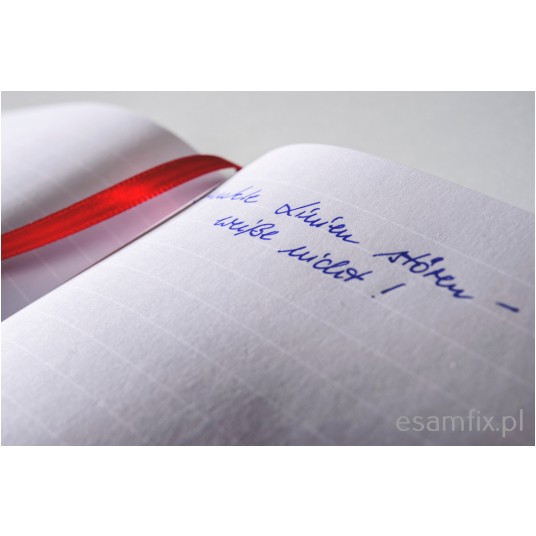 Linien stören –
weiße nicht!
esamfix.pl